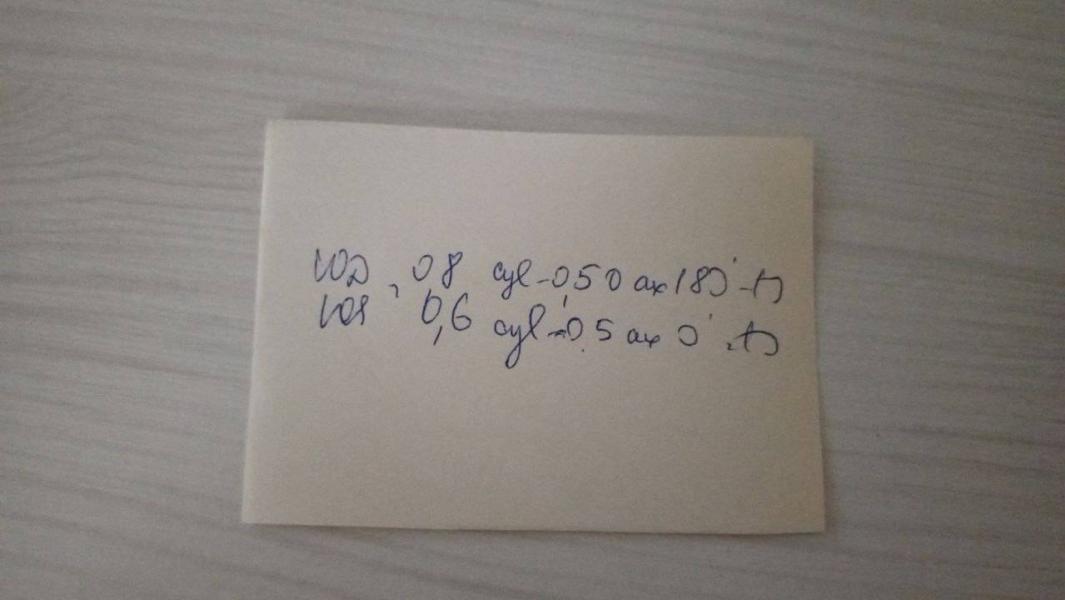 VOD 0,8 cyl -0,50 ax 180°
VOS 0,6 cyl -0,5 ax 0°